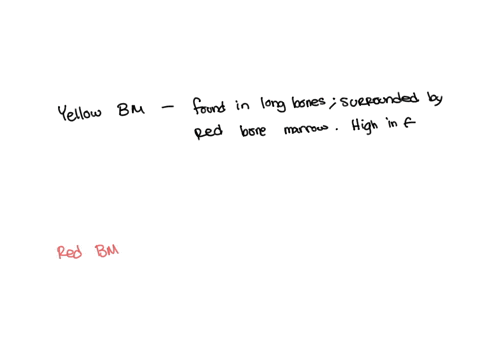 Yellow BM - found in long bones; surrounded by
Red bone marrow. High in f
Red BM